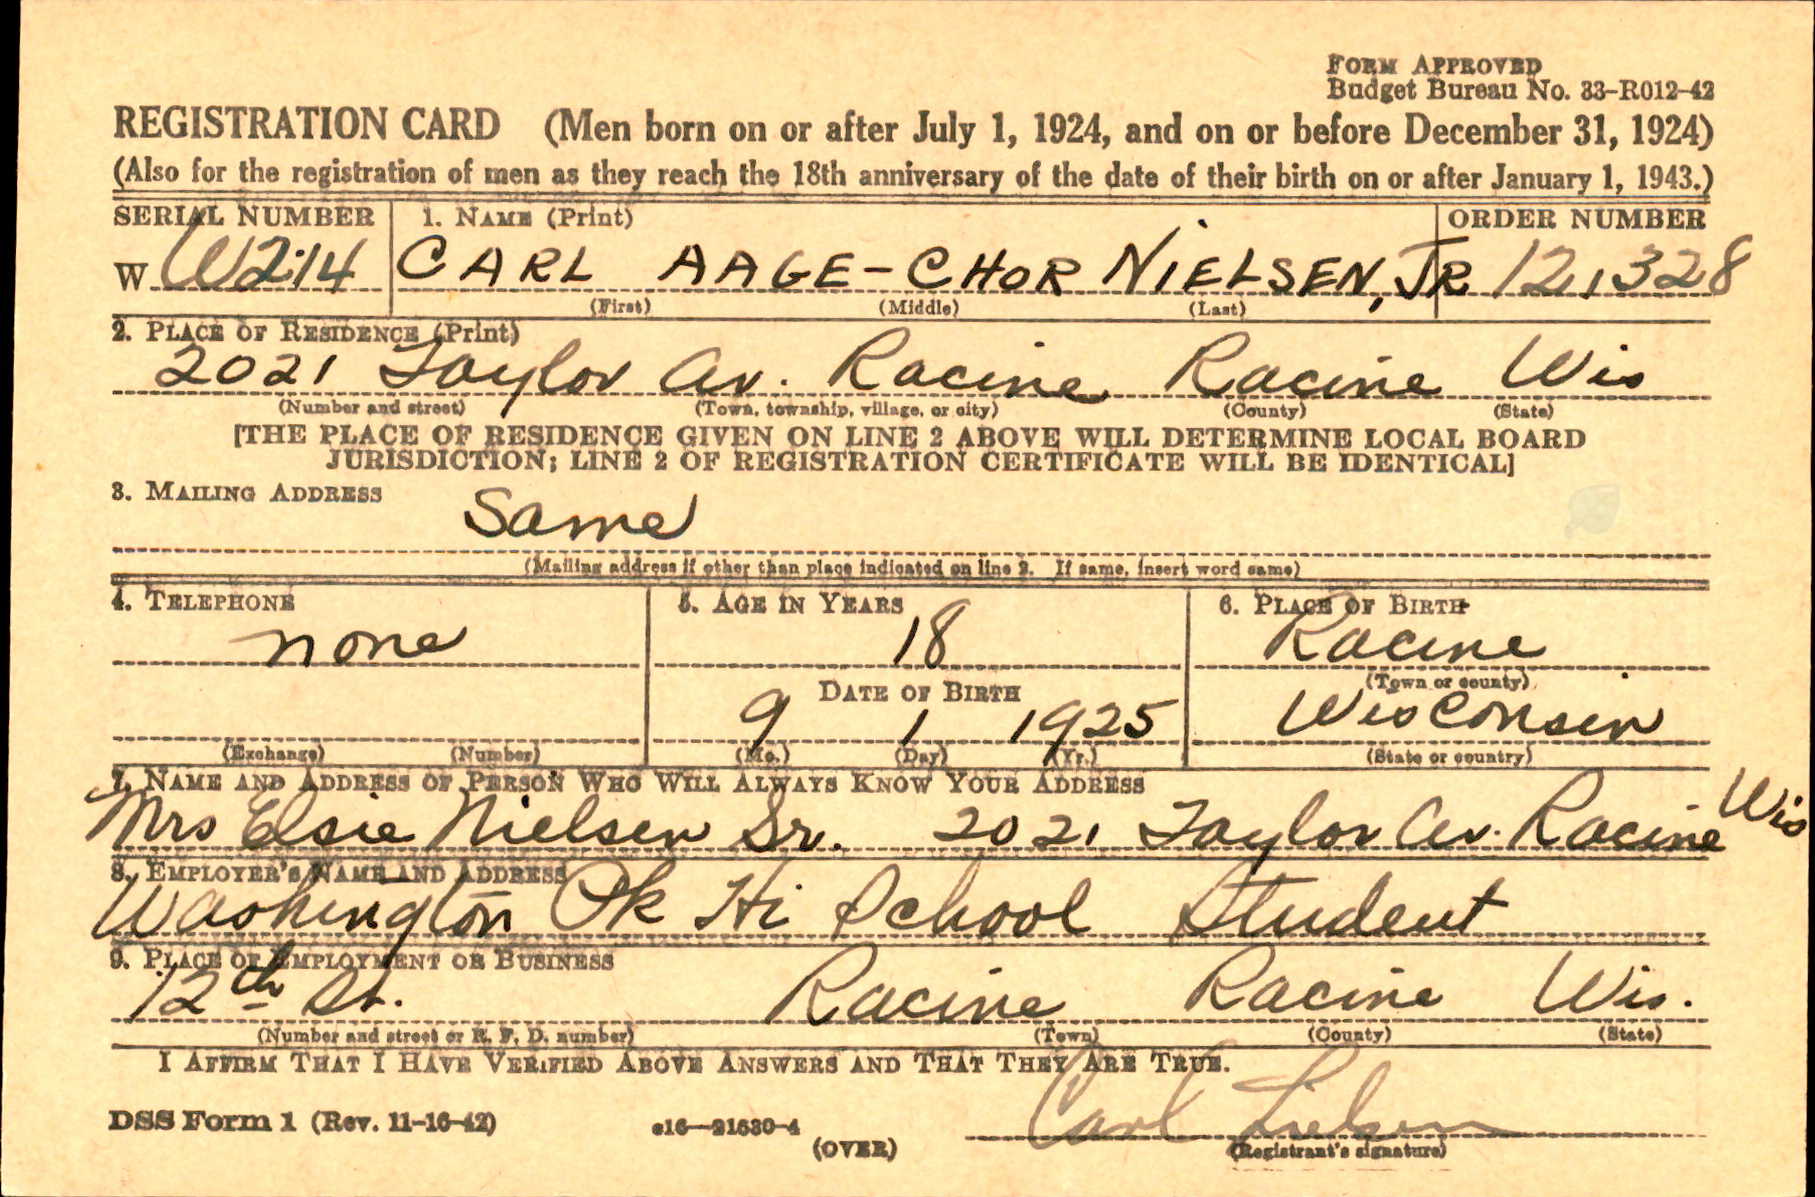 FORM APPROVED
Budget Bureau No. 33-R012-42
REGISTRATION CARD (Men born on or after July 1, 1924, and on or before December 31, 1924)
(Also for the registration of men as they reach the 18th anniversary of the date of their birth on or after January 1, 1943.)
SERIAL NUMBER 1. NAME (Print) ORDER NUMBER
W W214 CARL AAGE-CHOR NIELSEN, JR 12,328
(First) (Middle) (Last)
2. PLACE OF RESIDENCE (Print)
2021 Taylor Av. Racine Racine Wis
(Number and street) (Town, township, village, or city) (County) (State)
[THE PLACE OF RESIDENCE GIVEN ON LINE 2 ABOVE WILL DETERMINE LOCAL BOARD
JURISDICTION; LINE 2 OF REGISTRATION CERTIFICATE WILL BE IDENTICAL]
3. MAILING ADDRESS
Same
(Mailing address if other than place indicated on line 2. If same, insert word same)
4. TELEPHONE 5. AGE IN YEARS 6. PLACE OF BIRTH
none 18 Racine
(Town or county)
DATE OF BIRTH
9 1 1925 Wisconsin
(Exchange) (Number) (Mo.) (Day) (Yr.) (State or country)
7. NAME AND ADDRESS OF PERSON WHO WILL ALWAYS KNOW YOUR ADDRESS
Mrs Elsie Nielsen Sr. 2021 Taylor Av. Racine Wis
8. EMPLOYER'S NAME AND ADDRESS
Washington Pk Hi School Student
9. PLACE OF EMPLOYMENT OR BUSINESS
12th St. Racine Racine Wis.
(Number and street or R. F. D. number) (Town) (County) (State)
I AFFIRM THAT I HAVE VERIFIED ABOVE ANSWERS AND THAT THEY ARE TRUE.
Carl Nielsen
DSS Form 1 (Rev. 11-16-42) c16—21630-4
(OVER) (Registrant's signature)